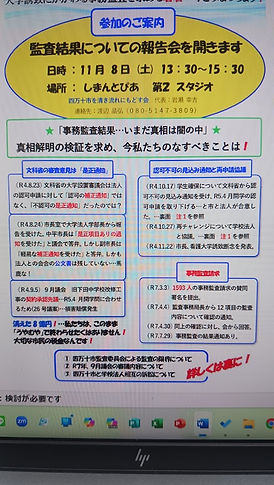 参加のご案内
監査結果についての報告会を開きます
日時：11月8日（土）13：30～15：30
場所：しまんとぴあ 第2スタジオ
四万十市を清き流れにもどす会 代表：岩瀬
連絡先：渡辺 晶弘(090-5147-3809)
★「事務監査結果…いまだ真相は闇の中」★
真相解明の検証を求め、今私たちのなすべきことは！
文科省の審査意見は「是正通知」
（R4.8.23）文科省の大学設置審議会は法人
の認可申請に対して「認可の補正通知」では
なく、「不認可の是正通知」だったのでは？
（R4.8.24）市長室で大学法人学部長から報
告を受けた。中平市長は「是正項目ありの通
知だった」と議会で答弁。しかし副市長は
「軽易な補正通知を受けた」と答弁。しかも
法人との会合の公文書は残していない…馬
鹿な！
（R4.9.5）9月議会 旧下田中学校改修工
事の契約承認先議…R5.4月開学間に合わせ
るため26号議案…損害賠償発生
認可不可の見込み通知と再申請協議
（R4.10.17）学生確保について文科省から認
可不可の見込み通知を受け、R5.4月開学の認
可申請を取り下げる…と市と法人が合意し
た。…裏面 注1を参照
（R4.10.27）再チャレンジについて学校法人
と協議、…裏面 注1を参照
（R4.11.22）市長、看護大学誘致断念を発表。
事務監査請求
（R7.3.3）1593人の事務監査請求の賛同
署名を提出。
（R7.4.4）監査事務局から12項目の監査
内容について確認の通知。
（R7.4.30）同上の確認に対し、会から回答。
（R7.9.29）監査委の結果通知あり。
消えた8億円！…私たちは、このまま
「うやむや」で終わらせたくはありません！
大切な市民の税金なんです！
① 四万十市監査委員会による監査の限界について
② R7年、9月議会の審議内容について
③ 四万十市と学校法人相互の訴訟について
詳しくは裏に！
：検討が必要です
hp